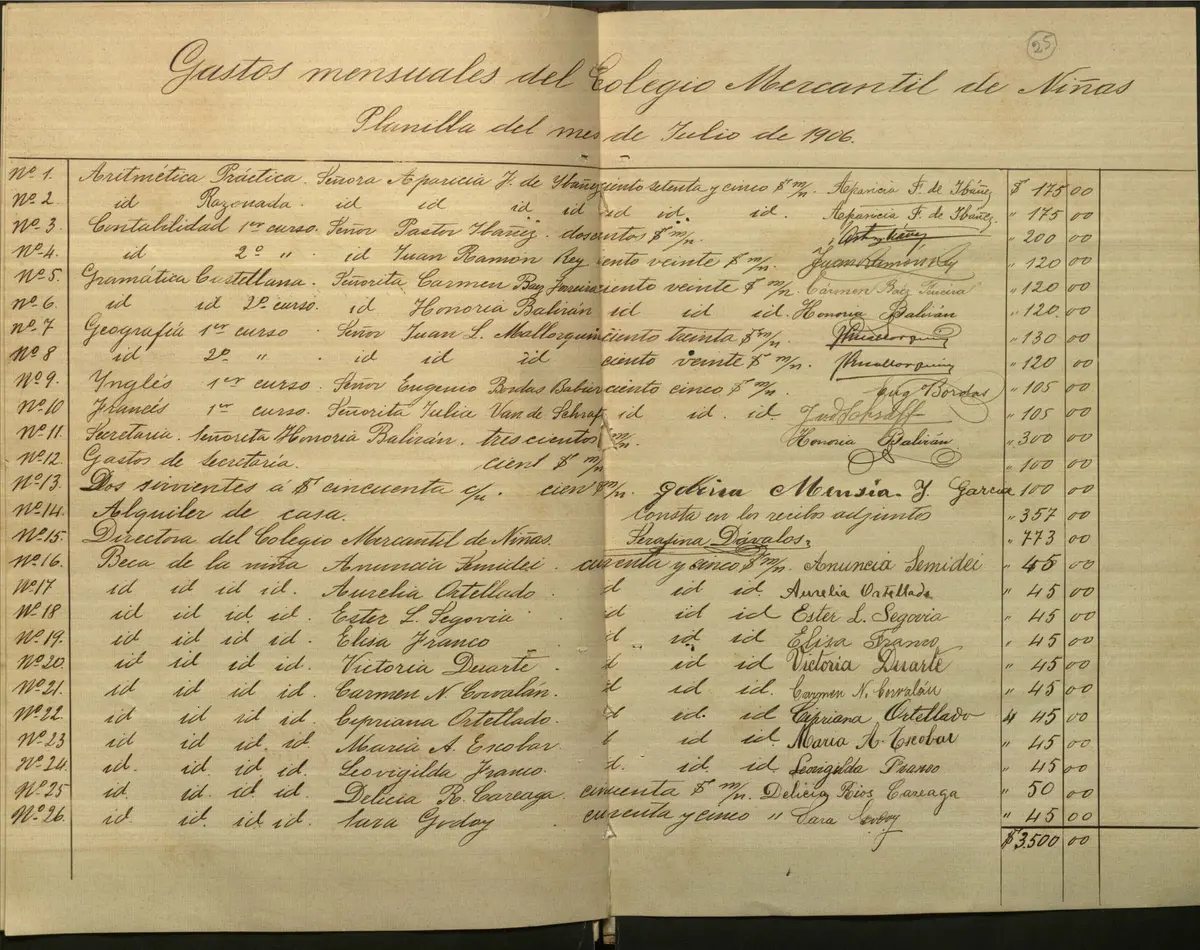 25
Gastos mensuales del Colegio Mercantil de Niñas
Planilla del mes de Julio de 1906.
Nº 1. Aritmética Práctica. Señora Aparicia F. de Ibáñez ciento setenta y cinco $ m/n. Aparicia F. de Ibáñez $ 175 00
Nº 2 id Razonada. id id id id id id. id. Aparicia F. de Ibáñez. " 175 00
Nº 3 Contabilidad 1er curso. Señor Pastor Ibáñez. doscientos $ m/n. " 200 00
Nº 4. id 2º " . id Juan Ramon Rey ciento veinte $ m/n. " 120 00
Nº 5. Gramática Castellana. Señorita Carmen Baez Ferreira ciento veinte $ m/n. Cármen Baez Ferreira " 120 00
Nº 6. id id 2º curso. id Honoria Balirán id id id. Honoria Balirán " 120. 00
Nº 7 Geografía 1er curso . Señor Juan L. Mallorquin ciento treinta $ m/n. " 130 00
Nº 8 id 2º " . id id id ciento veinte $ m/n. " 120 00
Nº 9. Ynglés 1er curso. Señor Eugenio Bordas ciento cinco $ m/n. Eug Bordas " 105 00
Nº 10 Francés 1er curso. Señorita Julia Van de Schraf id id. id " 105 00
Nº 11. Secretaria. Señoreta Honoria Balirán. trescientos m/n. Honoria Balirán " 300 00
Nº 12. Gastos de secretaría. cient $ m/n " 100 00
Nº 13. Dos sirvientes á $ cincuenta c/u. cien $ m/n. Mensia. J. Garcia 100 00
Nº 14. Alquiler de casa. Consta en los recibos adjuntos " 357 00
Nº 15. Directora del Colegio Mercantil de Niñas. Serafina Dávalos. " 773 00
Nº 16. Beca de la niña Anuncia Semidei . cuarenta y cinco $ m/n. Anuncia Semidei " 45 00
Nº 17 id id id id. Aurelia Ortellado . id id id Aurelia Ortellado " 45 00
Nº 18 id id. id id. Ester L. Segovia . id id id Ester L. Segovia " 45 00
Nº 19. id id id id. Elisa Franco . id id id Elisa Franco " 45 00
Nº 20. id id id id. Victoria Duarte . id id id Victoria Duarte " 45 00
Nº 21. id id id id. Carmen N. Corvalán. id id id. Carmen N. Corvalán " 45 00
Nº 22. id id id id. Cipriana Ortellado. id id. id Cipriana Ortellado " 45 00
Nº 23 id id id. id. Maria A. Escobar. id id id. Maria A. Escobar " 45 00
Nº 24. id. id id id. Leovigilda Franco. id. id. id. Leovigilda Franco " 45 00
Nº 25 id. id. id id. Delicia R. Careaga. cincuenta $ m/n. Delicia Rios Careaga " 50 00
Nº 26. id. id. id id. Sara Godoy . cuarenta y cinco " Sara Godoy " 45 00
$ 3.500 00